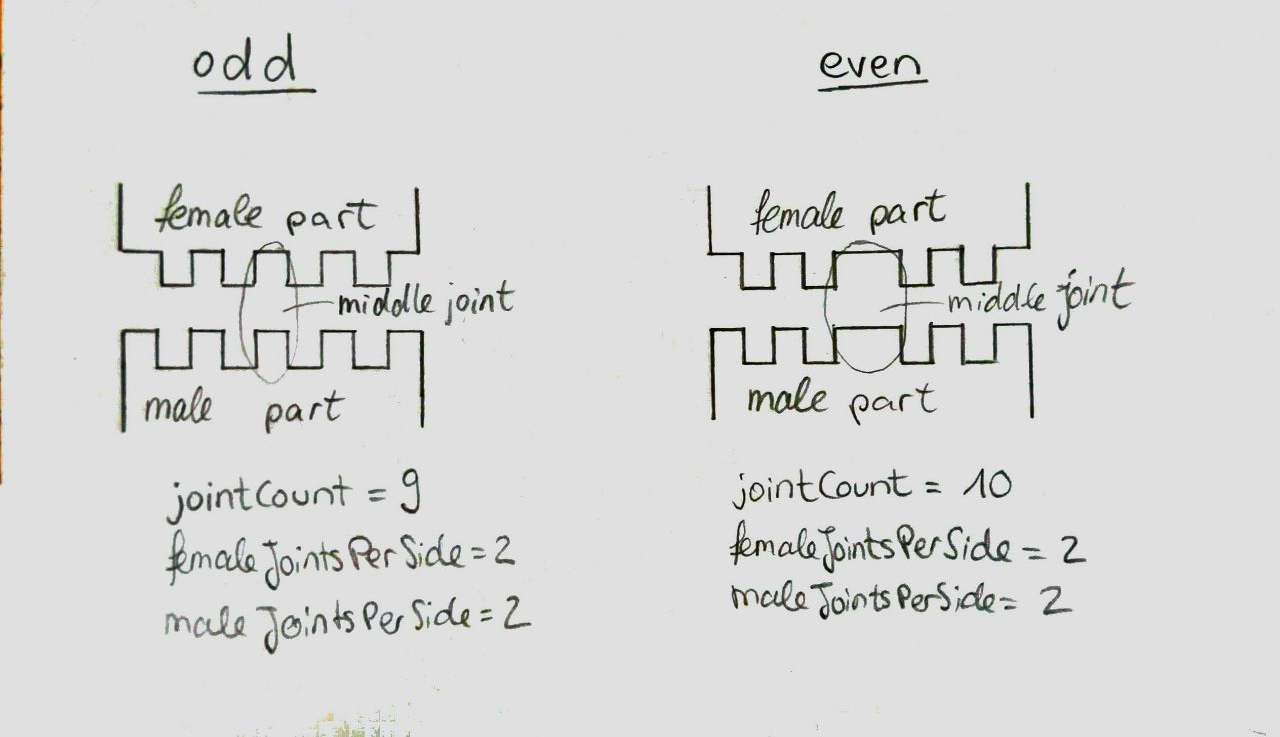 odd
female part
middle joint
male part
jointCount = 9
femaleJointsPerSide = 2
maleJointsPerSide = 2
even
female part
middle joint
male part
jointCount = 10
femaleJointsPerSide = 2
maleJointsPerSide = 2